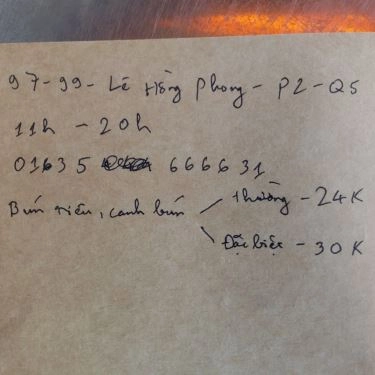 97-99- Lê Hồng Phong - P2-Q5
11h - 20h
01635 666631
Bún riêu, canh bún
thường - 24K
Đặc biệt - 30K